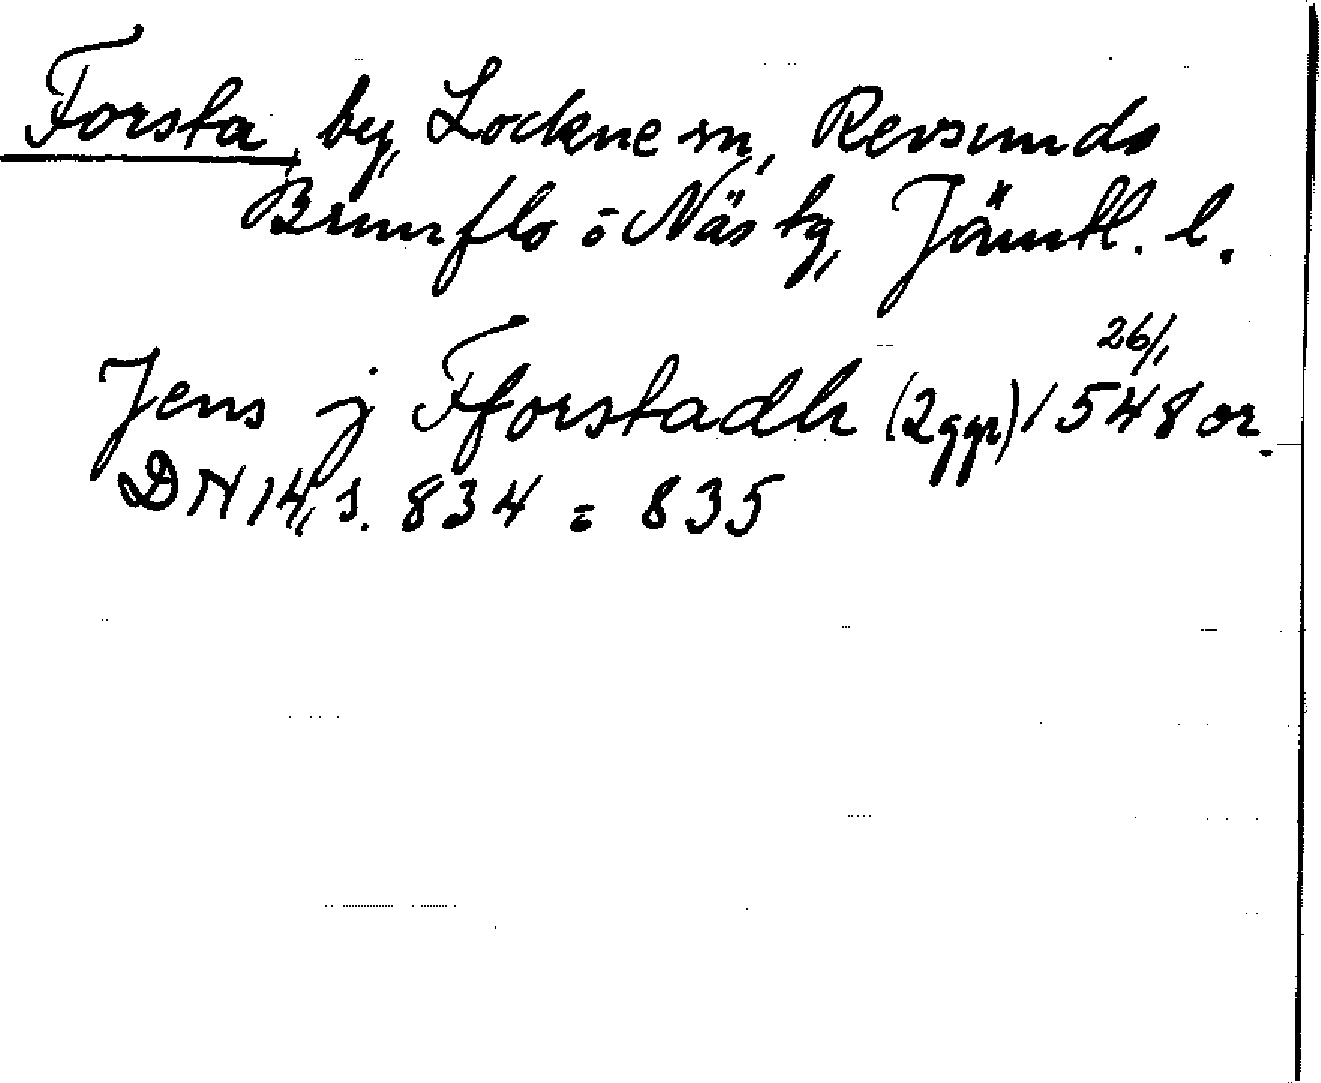 Forsta, by, Lockne sn, Revsunds
Brunflo o Näs tg, Jämtl. l.
Jens j Fforstadh (2ggr) 26/1 1548 or.
DN 14, s. 834 o 835